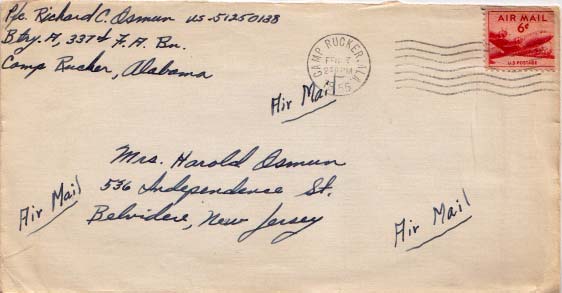 Pfc. Richard C. Osmun US-51250138
Btry. A, 337th F. A. Bn.
Camp Rucker, Alabama
CAMP RUCKER, ALA.
FEB
PM
AIR MAIL
6¢
U.S. POSTAGE
Air Mail
Mrs. Harold Osmun
536 Independence St.
Belvidere, New Jersey
Air Mail
Air Mail